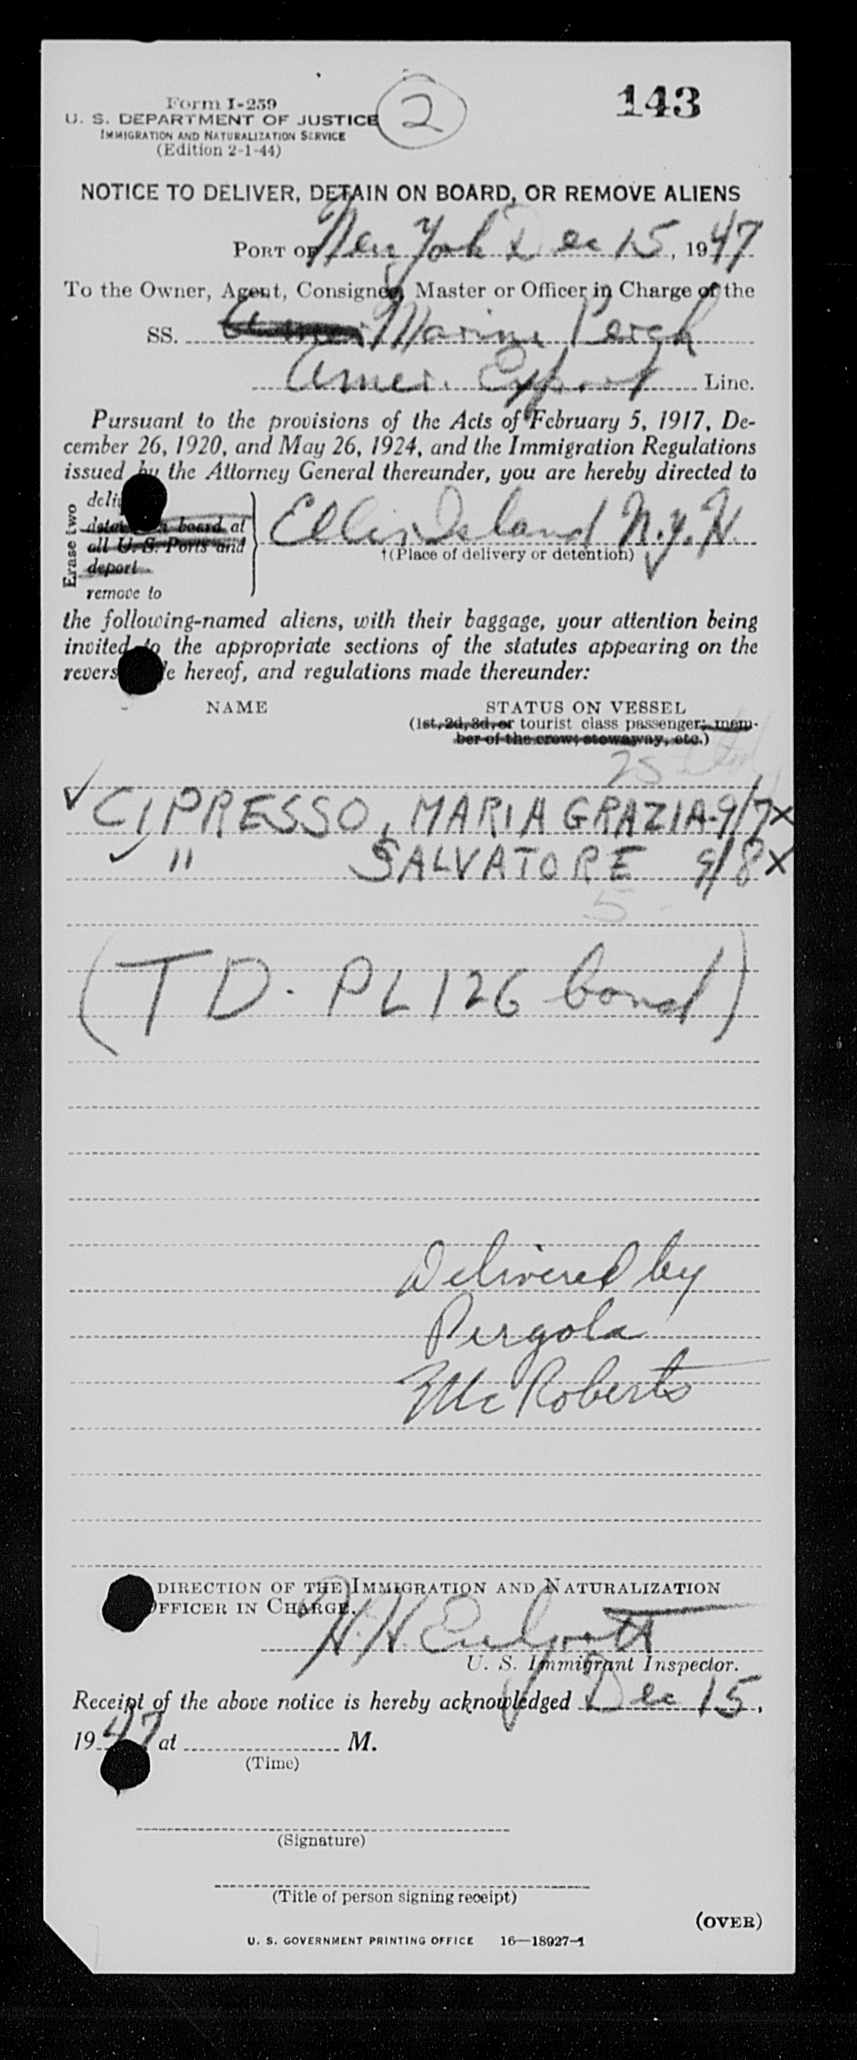 Form I-259
2
143
U. S. DEPARTMENT OF JUSTICE
IMMIGRATION AND NATURALIZATION SERVICE
(Edition 2-1-44)
NOTICE TO DELIVER, DETAIN ON BOARD, OR REMOVE ALIENS
PORT OF New York Dec 15, 1947
To the Owner, Agent, Consignee, Master or Officer in Charge of the
SS. Amer Marine Perch
Amer. Export Line.
Pursuant to the provisions of the Acts of February 5, 1917, De-
cember 26, 1920, and May 26, 1924, and the Immigration Regulations
issued by the Attorney General thereunder, you are hereby directed to
Erase two
deli
deta board at
all U. S. Ports and
deport
remove to
Ellis Island N.Y.H.
†(Place of delivery or detention)
the following-named aliens, with their baggage, your attention being
invited to the appropriate sections of the statutes appearing on the
revers e hereof, and regulations made thereunder:
NAME STATUS ON VESSEL
(1st, 2d, 3d, or tourist class passenger; mem-
ber of the crew; stowaway, etc.)
25
✓ CIPRESSO, MARIA GRAZIA - 9/7 X
✓ " SALVATORE 9/8 X
5
(TD. PL 126 bond)
Delivered by
Pergola
McRoberts
DIRECTION OF THE IMMIGRATION AND NATURALIZATION
OFFICER IN CHARGE.
H. H.
U. S. Immigrant Inspector.
Receipt of the above notice is hereby acknowledged Dec 15,
1947 at M.
(Time)
(Signature)
(Title of person signing receipt)
(OVER)
U. S. GOVERNMENT PRINTING OFFICE 16—18927-1